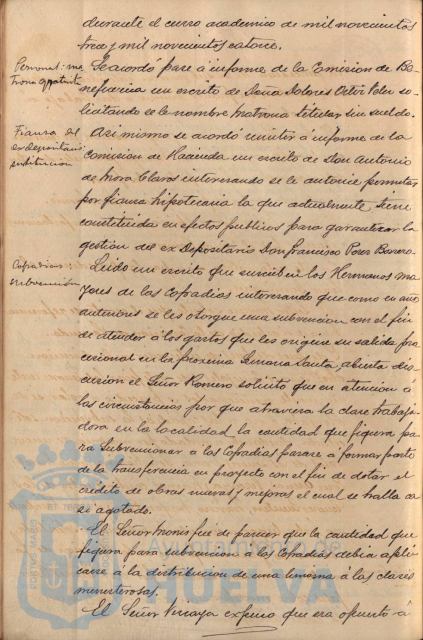 durante el curso academico de mil novecientos
trece á mil novecientos catorce.
Personal: ma
trona
Se acordó pase á informe de la Comision de Be
neficencia un escrito de Doña Dolores Ortiz so
licitando se le nombre matrona titular sin sueldo.
Fianza del
ex depositario
sustitucion
Asi mismo se acordó remitir á informe de la
Comision de Hacienda un escrito de Don Antonio
de Mora Claros interesando se le autorice permutar
por fianza hipotecaria la que actualmente tiene
constituida en efectos publicos para garantizar la
gestión del ex Depositario Don Francisco Perez Barroso.
Cofradias
subvención
Leido un escrito que suscriben los Hermanos ma
yores de las Cofradias interesando que como en años
anteriores se les otorgue una subvencion con el fin
de atender á los gastos que les origine su salida pro
cesional en la proxima Semana Santa, abierta dis
cusion el Señor Romero solicitó que en atencion á
las circunstancias por que atraviesa la clase trabaja
dora en la localidad la cantidad que figura pa
ra subvencionar á las Cofradias pasare a formar parte
de la transferencia en proyecto con el fin de dotar el
crédito de obras nuevas y mejoras el cual se halla ca
si agotado.
El Señor fué de parecer que la cantidad que
figura para subvencion á las Cofradias debia aplic
arse á la distribucion de una limosna á las clases
menesterosas.
El Señor Vizcaya expuso que era opuesto á
PORTUS MARIS
HUELVA